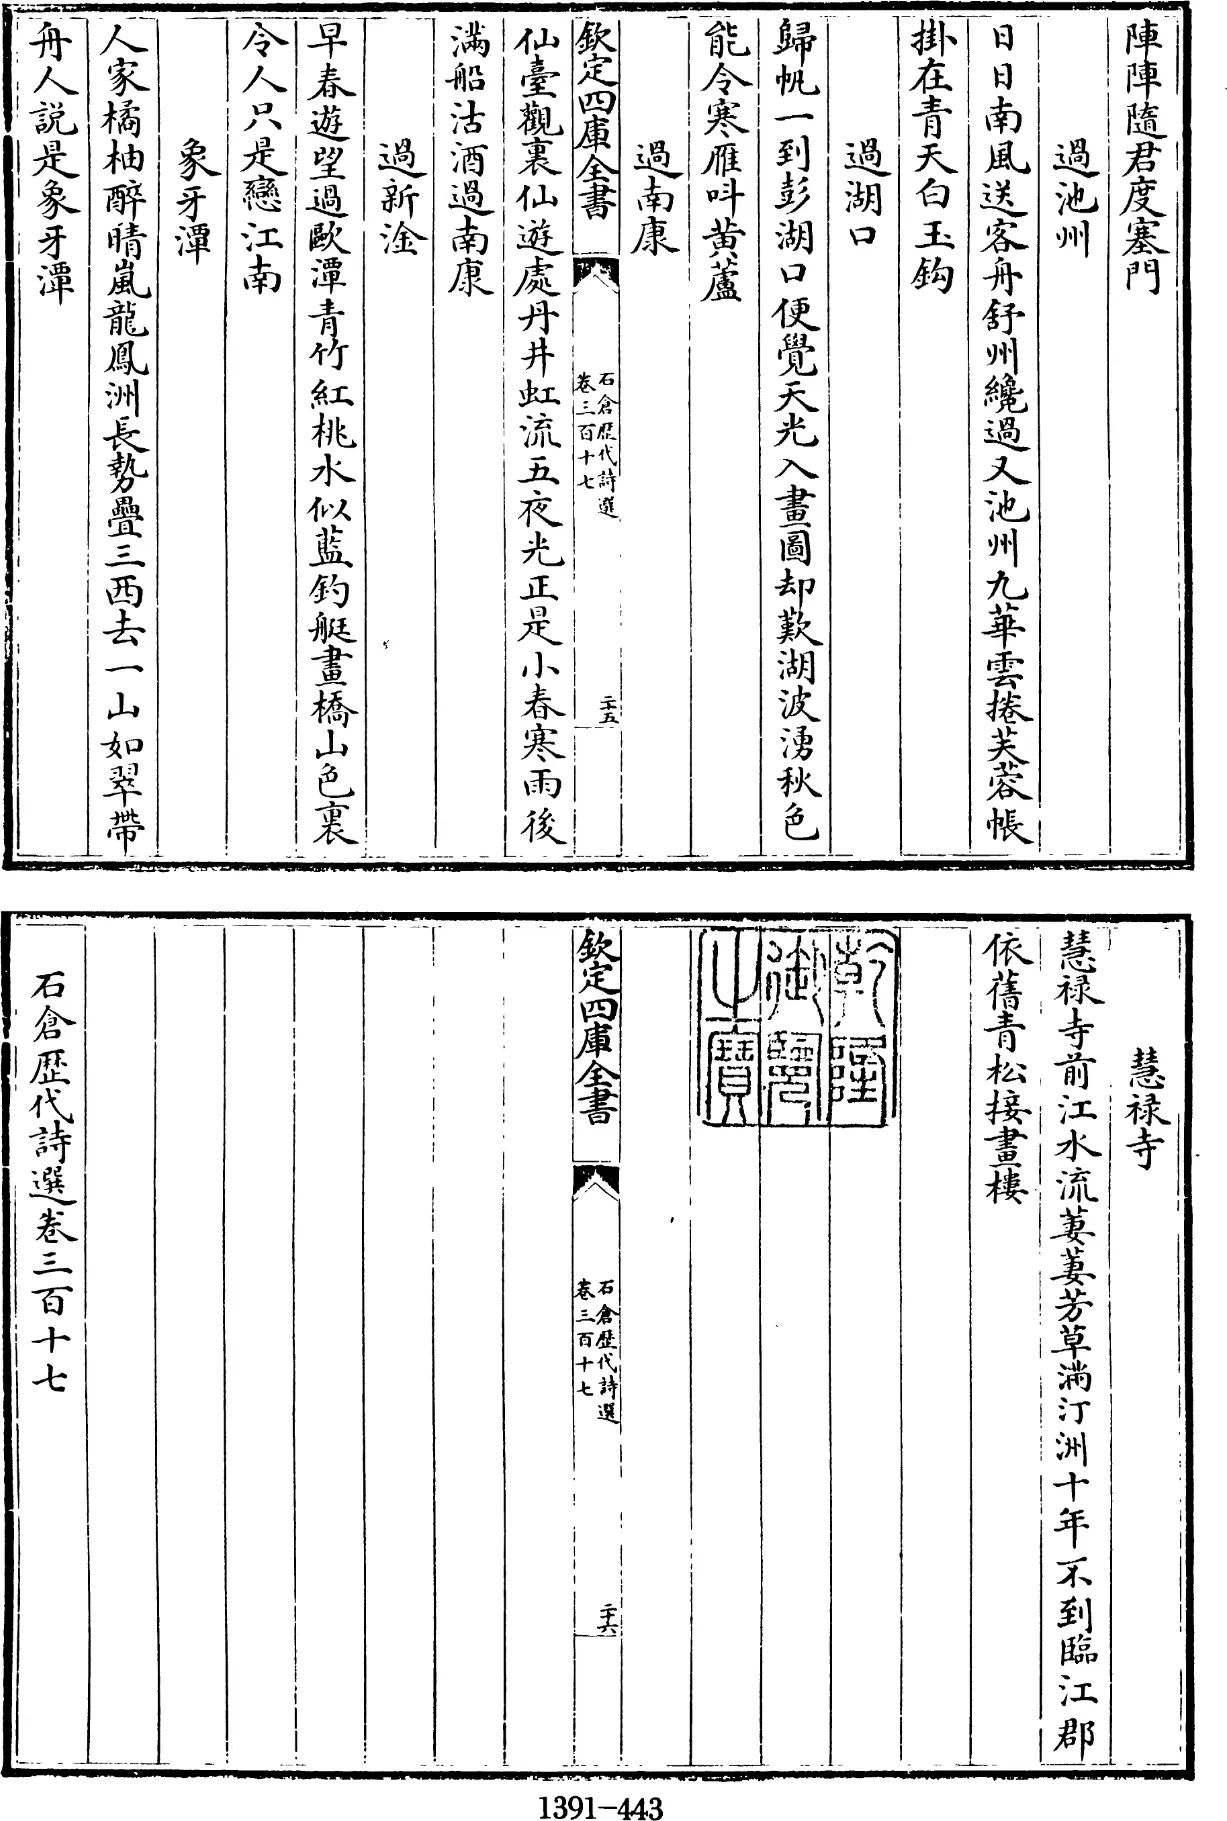 陣陣隨君度塞門
過池州
日日南風送客舟舒州纔過又池州九華雲捲芙蓉帳
掛在青天白玉鈎
過湖口
歸帆一到彭湖口便覺天光入畫圖却歎湖波湧秋色
能令寒雁呌黄蘆
過南康
欽定四庫全書
石倉歴代詩選
卷三百十七
二十五
仙臺觀裏仙遊處丹井虹流五夜光正是小春寒雨後
滿船沽酒過南康
過新淦
早春遊望過歐潭青竹紅桃水似藍釣艇畫橋山色裏
令人只是戀江南
象牙潭
人家橘柚醉晴嵐龍鳳洲長勢疊三西去一山如翠帶
舟人説是象牙潭
慧禄寺
慧禄寺前江水流萋萋芳草滿汀洲十年不到臨江郡
依舊青松接畫樓
乾隆
御覽
之寶
欽定四庫全書
石倉歴代詩選
卷三百十七
二十六
石倉歴代詩選卷三百十七
1391-443